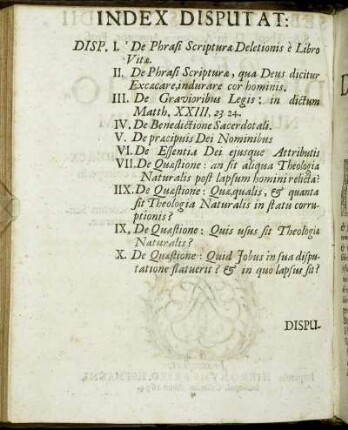 INDEX DISPUTAT:
DISP. I. De Phrasi Scripturæ Deletionis è Libro
Vitæ.
II. De Phrasi Scripturæ, qua Deus dicitur
Excæcare, indurare cor hominis.
III. De Gravioribus Legis: in dictum
Matth. XXIII, 23 24.
IV. De Benedictione Sacerdotali.
V. De præcipuis Dei Nominibus
VI. De Essentia Dei ejusque Attributis
VII. De Quæstione: an sit aliqua Theologia
Naturalis post lapsum homini relicta?
IIX. De Quæstione: Quæ, qualis, & quanta
sit Theologia Naturalis in statu corru-
ptionis?
IX. De Quæstione: Quis usus sit Theologia
Naturalis?
X. De Quæstione: Quid Jobus in sua dispu-
tatione statuerit? & in quo lapsus sit?
DISPU-